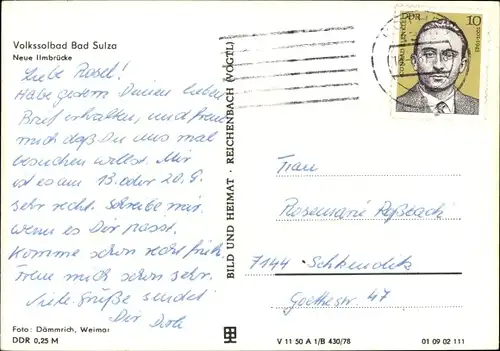 Volkssolbad Bad Sulza
Neue Ilmbrücke
Liebe Rosel!
Habe gestern Deinen lieben
Brief erhalten, und freue
mich daß Du uns mal
besuchen willst. Mir
ist es am 13. oder 20. 9.
sehr recht. Schreibe mir
wenn es Dir passt.
Komme schon recht früh.
Freue mich schon sehr.
Viele Grüße sendet
Dir
Foto: Dämmrich, Weimar
DDR 0,25 M
BILD UND HEIMAT · REICHENBACH (VOGTL)
V 11 50 A 1/B 430/78
01 09 02 111
DDR
10
Frau
Rosemarie
7144 Schkeuditz
Goethestr 47